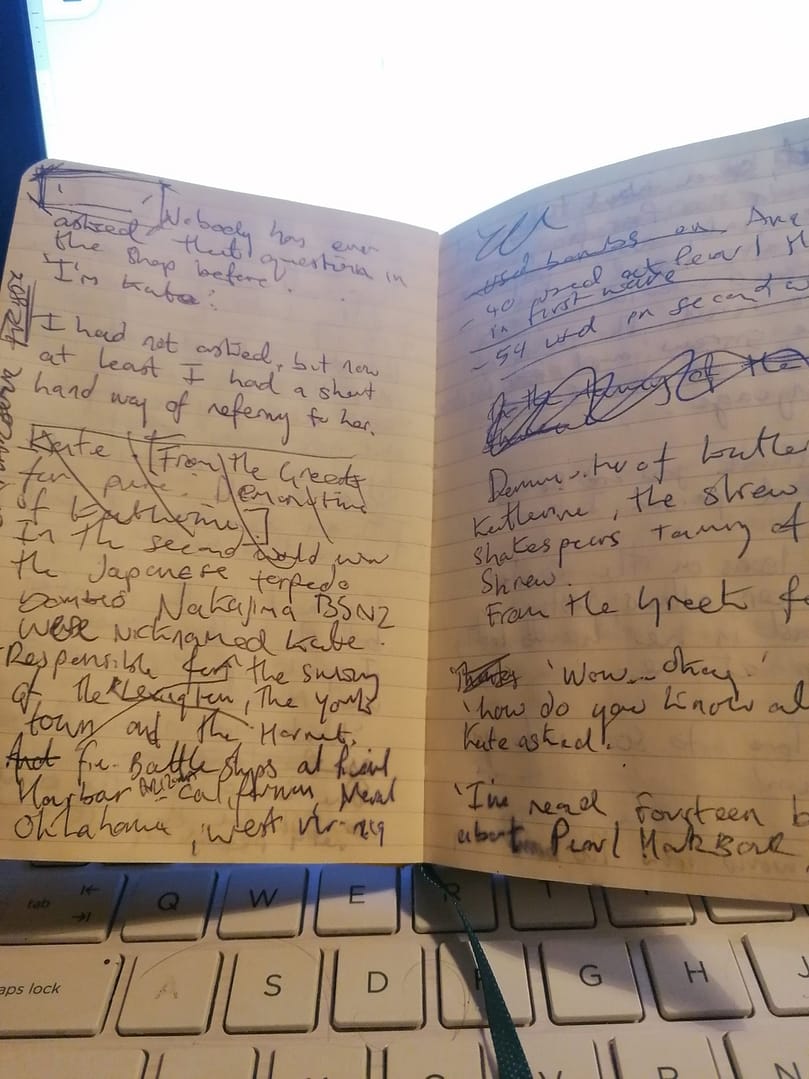 Nobody has ever
asked that question in
the shop before.
'I'm Kate'.
I had not asked, but now
at least I had a short
hand way of refering to her.
Kate. [From the Greek
for pure. Demonitive
of Katherine]
In the second world war
the Japanese torpedo
bombes Nakajima B5N2
were nicknamed Kate.
Responsible for the sinking
of the Lexington, The York
town and the Hornet.
And five Battle ships at Pearl
Harbar Arizona California, Neval
Oklahama, west vir
used bombs on
- 40 used at Pearl H
in first wave
- 54 used in second w
In the taming of the
of Kather
Katherine, the shrew
Shakespears Taming of
Shrew.
From the Greek f
Thanks 'Wow... Okay.'
'how do you know al
Kate asked.
'I've read fourteen b
about Pearl Harbour
tab
Q W E R T I
caps lock
A S D F G H J
V B N